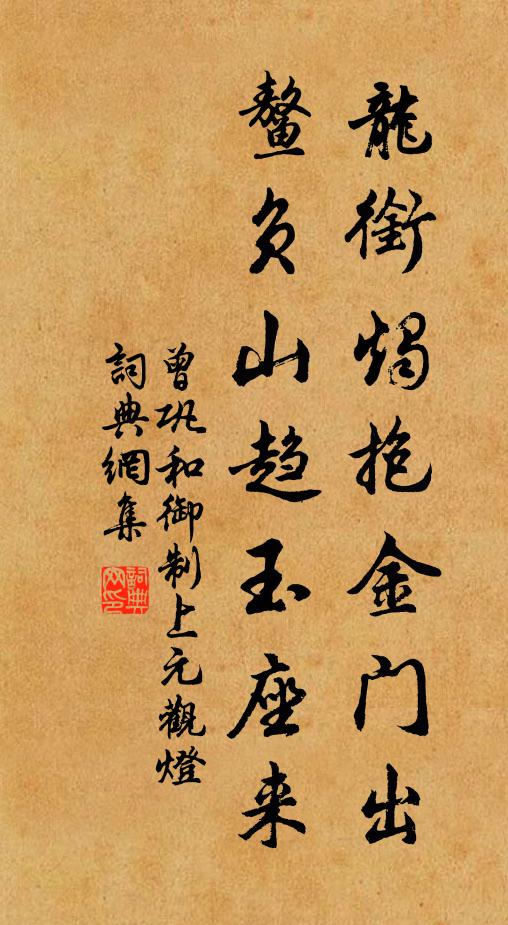 龍銜燭抱金门出
鰲负山趋玉座来
曾巩和御制上元觀燈
詞典網集
詞典网印